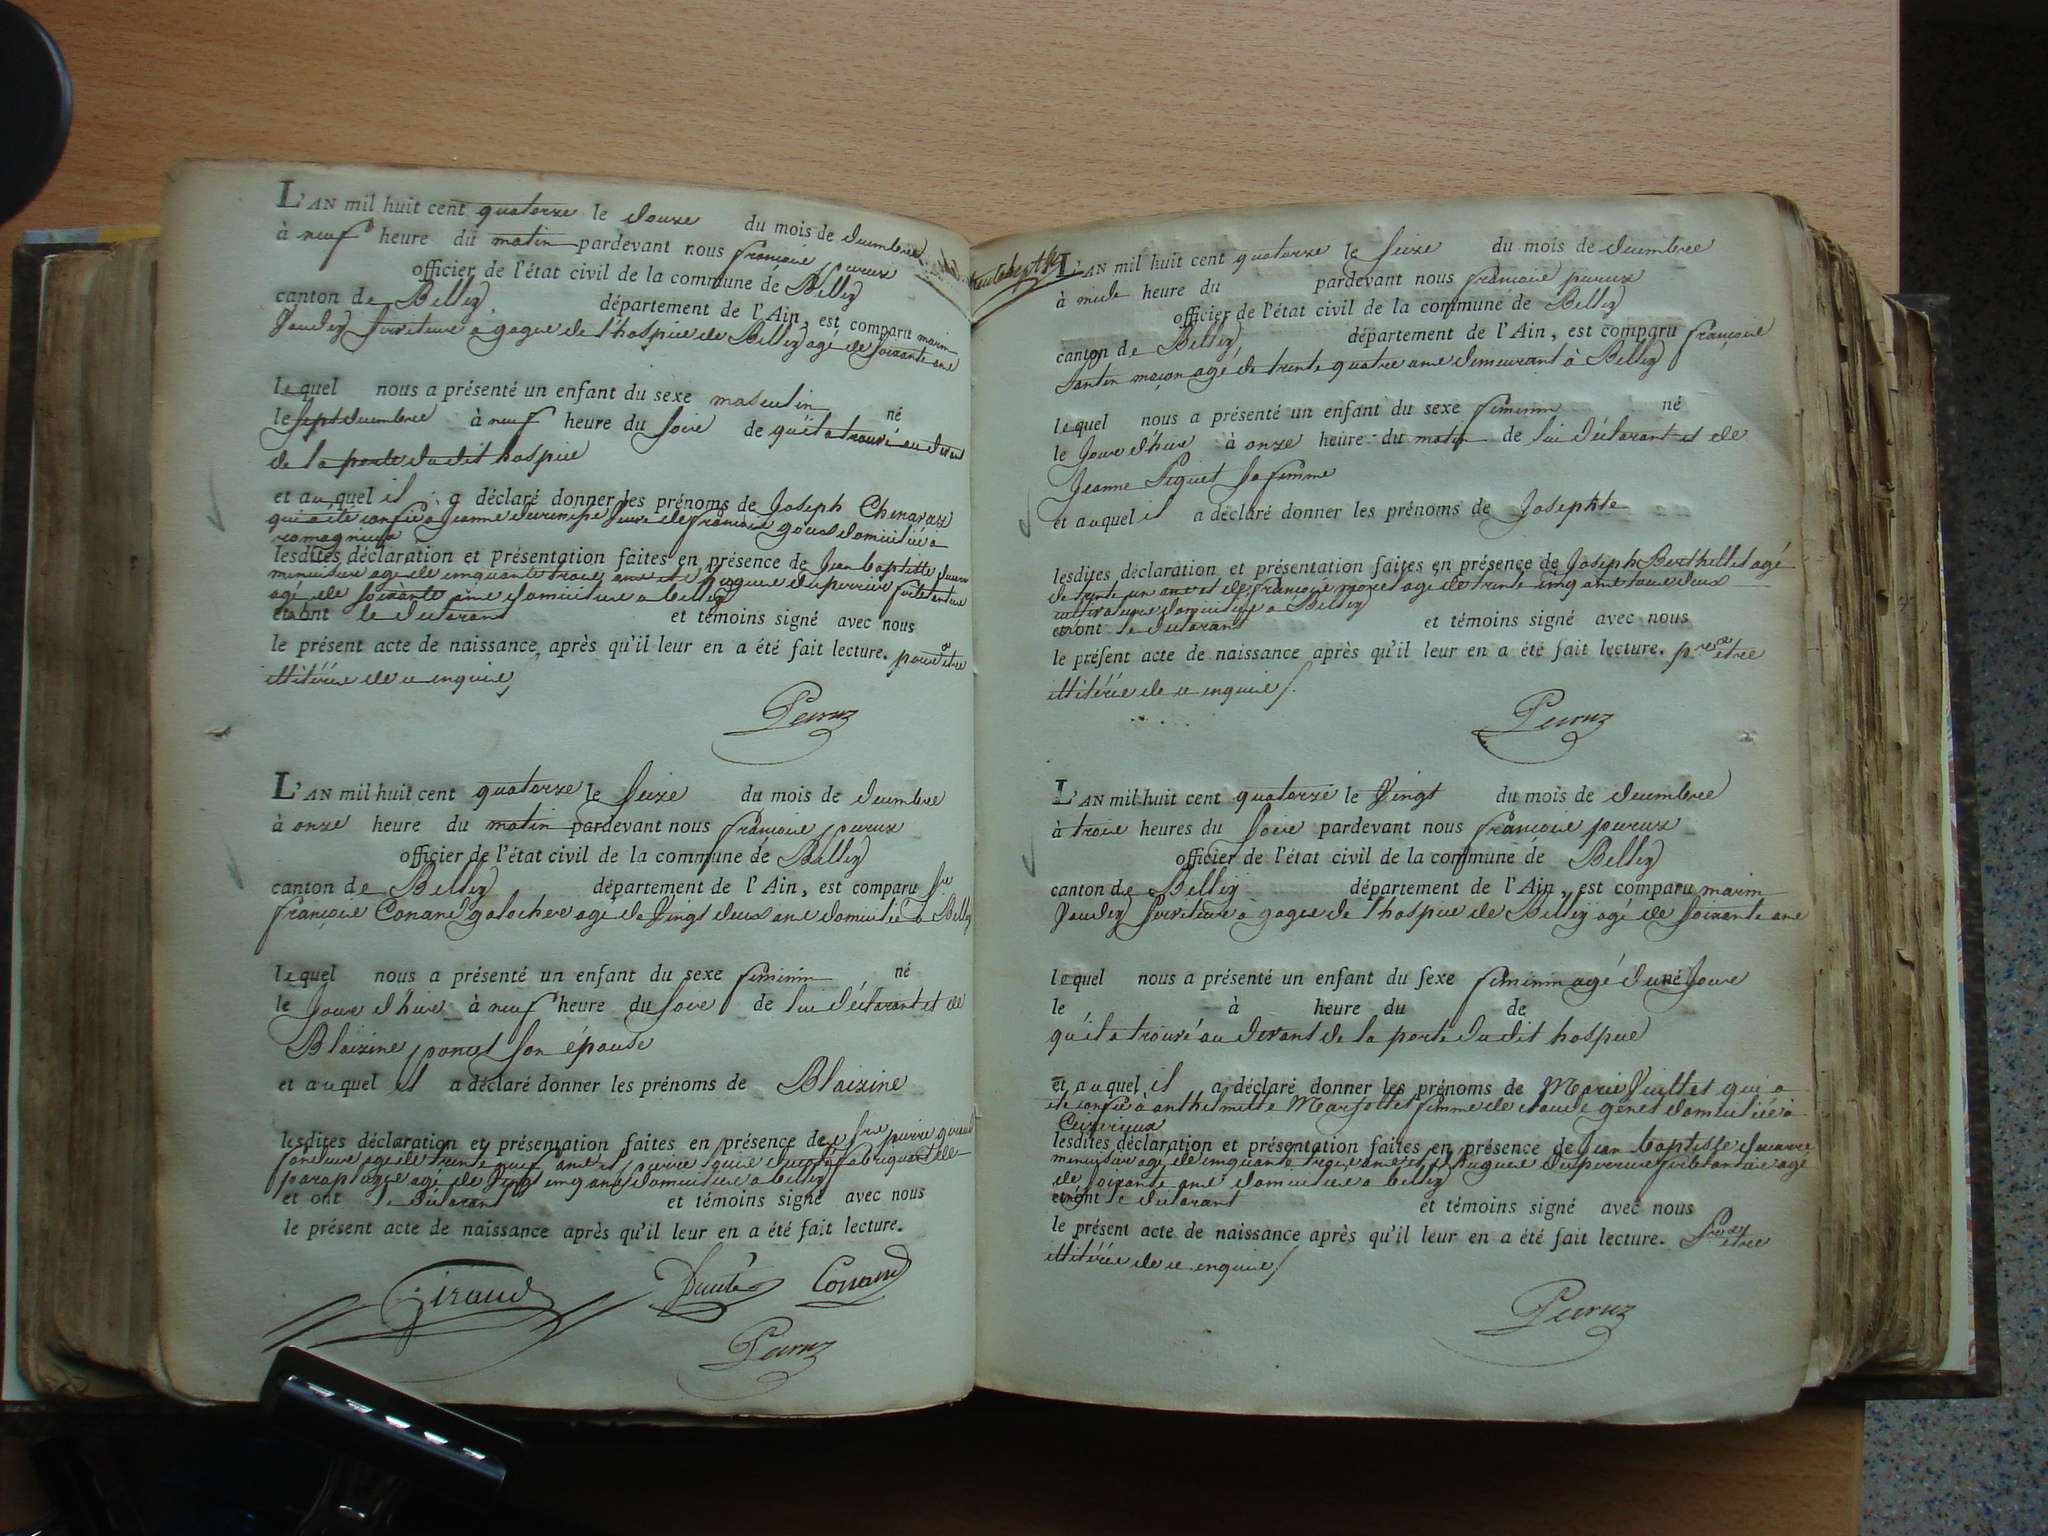 L'AN mil huit cent quatorze le douze du mois de decembre
à neuf heure du matin pardevant nous françois peruz
officier de l'état civil de la commune de Belley
canton de Belley département de l'Ain, est comparu marin
serviteur a gages de l'hospice de Belley agé de soixante ans
lequel nous a présenté un enfant du sexe masculin né
le sept decembre à neuf heure du soir de qu'il a trouvé au devant
de la porte dudit hospice
et auquel il a déclaré donner les prénoms de Joseph Chenavaz
qui a été confié a Jeanne veuve de françois domicilié a
romagnieux
lesdites déclaration et présentation faites en présence de Jean baptiste
menuisier agé de cinquante trois ans et hugues duperrier
agé de soixante ans domicilies a belley
et ont le declarant et témoins signé avec nous
le présent acte de naissance, après qu'il leur en a été fait lecture. pour être
illitérés de ce enquis
Peruz
L'AN mil huit cent quatorze le seize du mois de decembre
à onze heure du matin pardevant nous françois peruz
officier de l'état civil de la commune de Belley
canton de Belley département de l'Ain, est comparu sr
françois Conand galocher agé de vingt deux ans domicilié a Belley
lequel nous a présenté un enfant du sexe feminin né
le jour d'hier à neuf heure du soir de lui déclarant et de
Blaizine poncet son épouse
et auquel il a déclaré donner les prénoms de Blaizine
lesdites déclaration et présentation faites en présence de sre pierre giraud
agé de trente neuf ans et pierre fabriquant de
parapluge agé de vingt cinq ans domicilies a belley
et ont le déclarant et témoins signé avec nous
le présent acte de naissance après qu'il leur en a été fait lecture.
Giraud Conand
Peruz
L'AN mil huit cent quatorze le seize du mois de decembre
à midi heure du pardevant nous françois peruz
officier de l'état civil de la commune de Belley
canton de Belley département de l'Ain, est comparu françois
Santin maçon agé de trente quatre ans demeurant à Belley
lequel nous a présenté un enfant du sexe feminin né
le jour d'hier à onze heure du matin de lui déclarant et de
Jeanne Piguet sa femme
et auquel il a déclaré donner les prénoms de Josephte
lesdites déclaration et présentation faites en présence de Joseph Berthellet agé
de trente un ans et de françois moret agé de trente cinq ans tous deux
cultivateurs domicilies a Belley
et ont le declarant et témoins signé avec nous
le présent acte de naissance après qu'il leur en a été fait lecture. pour être
illitérés de ce enquis
Peruz
L'AN mil huit cent quatorze le vingt du mois de decembre
à trois heures du soir pardevant nous françois peruz
officier de l'état civil de la commune de Belley
canton de Belley département de l'Ain, est comparu marin
serviteur à gages de l'hospice de Belley agé de soixante ans
lequel nous a présenté un enfant du sexe feminin agé d'un né jour
le à heure du de
qu'il a trouvé au devant de la porte dudit hospice
et auquel il a déclaré donner les prénoms de Marie Vuillet qui a
été confié à anthelmette Marjollet femme de claude genet domicilié à
Ceyzerieux
lesdites déclaration et présentation faites en présence de Jean baptiste
menuisier agé de cinquante trois ans et hugues duperrier agé
de soixante ans domicilies a belley
et ont le declarant et témoins signé avec nous
le présent acte de naissance après qu'il leur en a été fait lecture. pour être
illitérés de ce enquis
Peruz